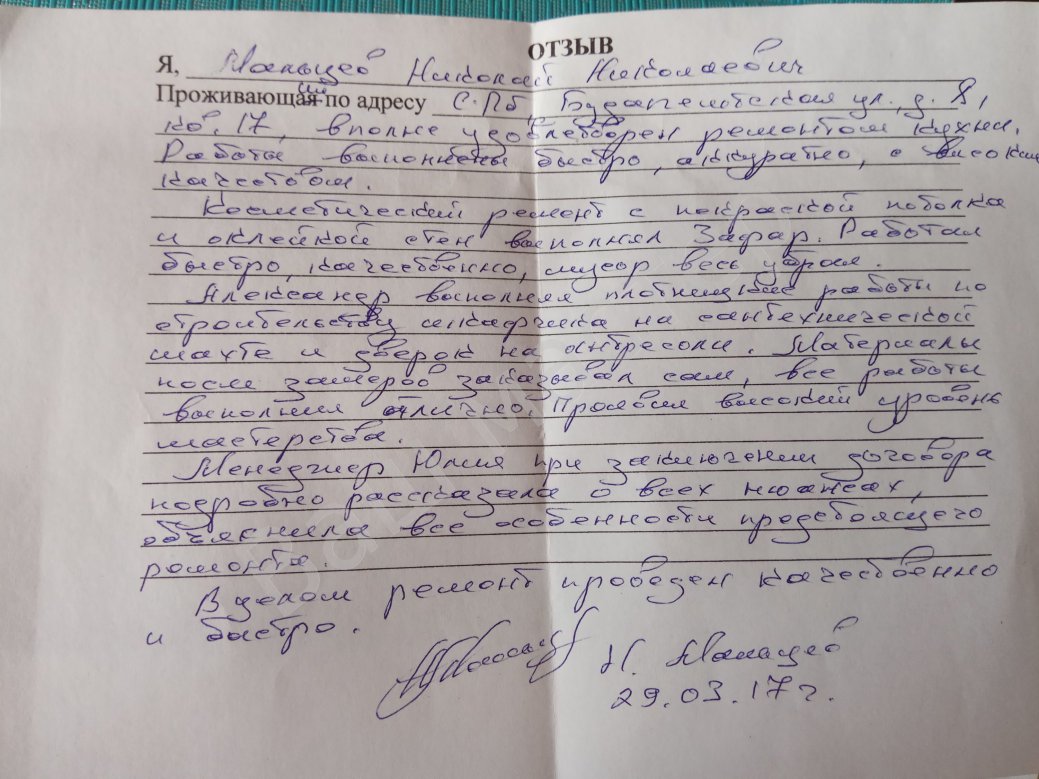 ОТЗЫВ
Я, Мальцев Николай Николаевич
Проживающая ий по адресу С.Пб, Будапештская ул., д. 8,
кв. 17, вполне удовлетворен ремонтом кухни.
Работы выполнены быстро, аккуратно, с высоким
качеством.
Косметический ремонт с покраской потолка
и оклейкой стен выполнял Зафар. Работал
быстро, качественно, мусор весь убрал.
Александр выполнял плотницкие работы по
строительству шкафчика на сантехнической
шахте и дверок на антресоли. Материалы
после замеров заказывал сам, все работы
выполнил отлично. Проявил высокий уровень
мастерства.
Менеджер Юлия при заключении договора
подробно рассказала о всех нюансах,
объяснила все особенности предстоящего
ремонта.
В целом ремонт проведен качественно
и быстро.
Н. Мальцев
29.03.17г.